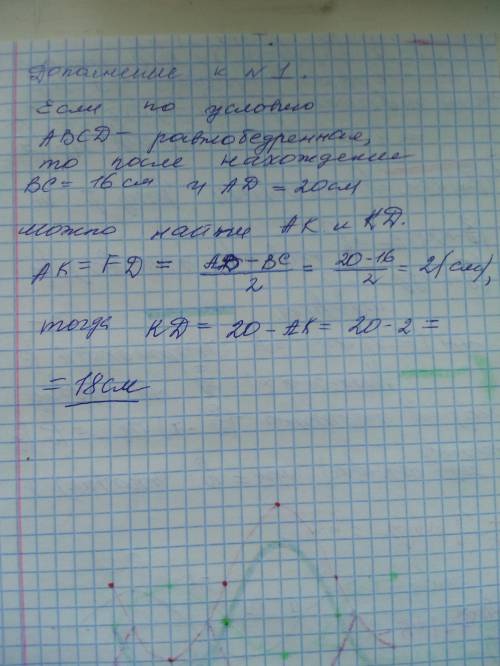 Дополнение к N 1.
Если по условию
ABCD - равнобедренная,
то после нахождение
BC = 16 см и AD = 20 см
можно найти AK и KD.
AK = FD = (AD - BC)/2 = (20 - 16)/2 = 2 (см),
тогда KD = 20 - AK = 20 - 2 =
= 18 см